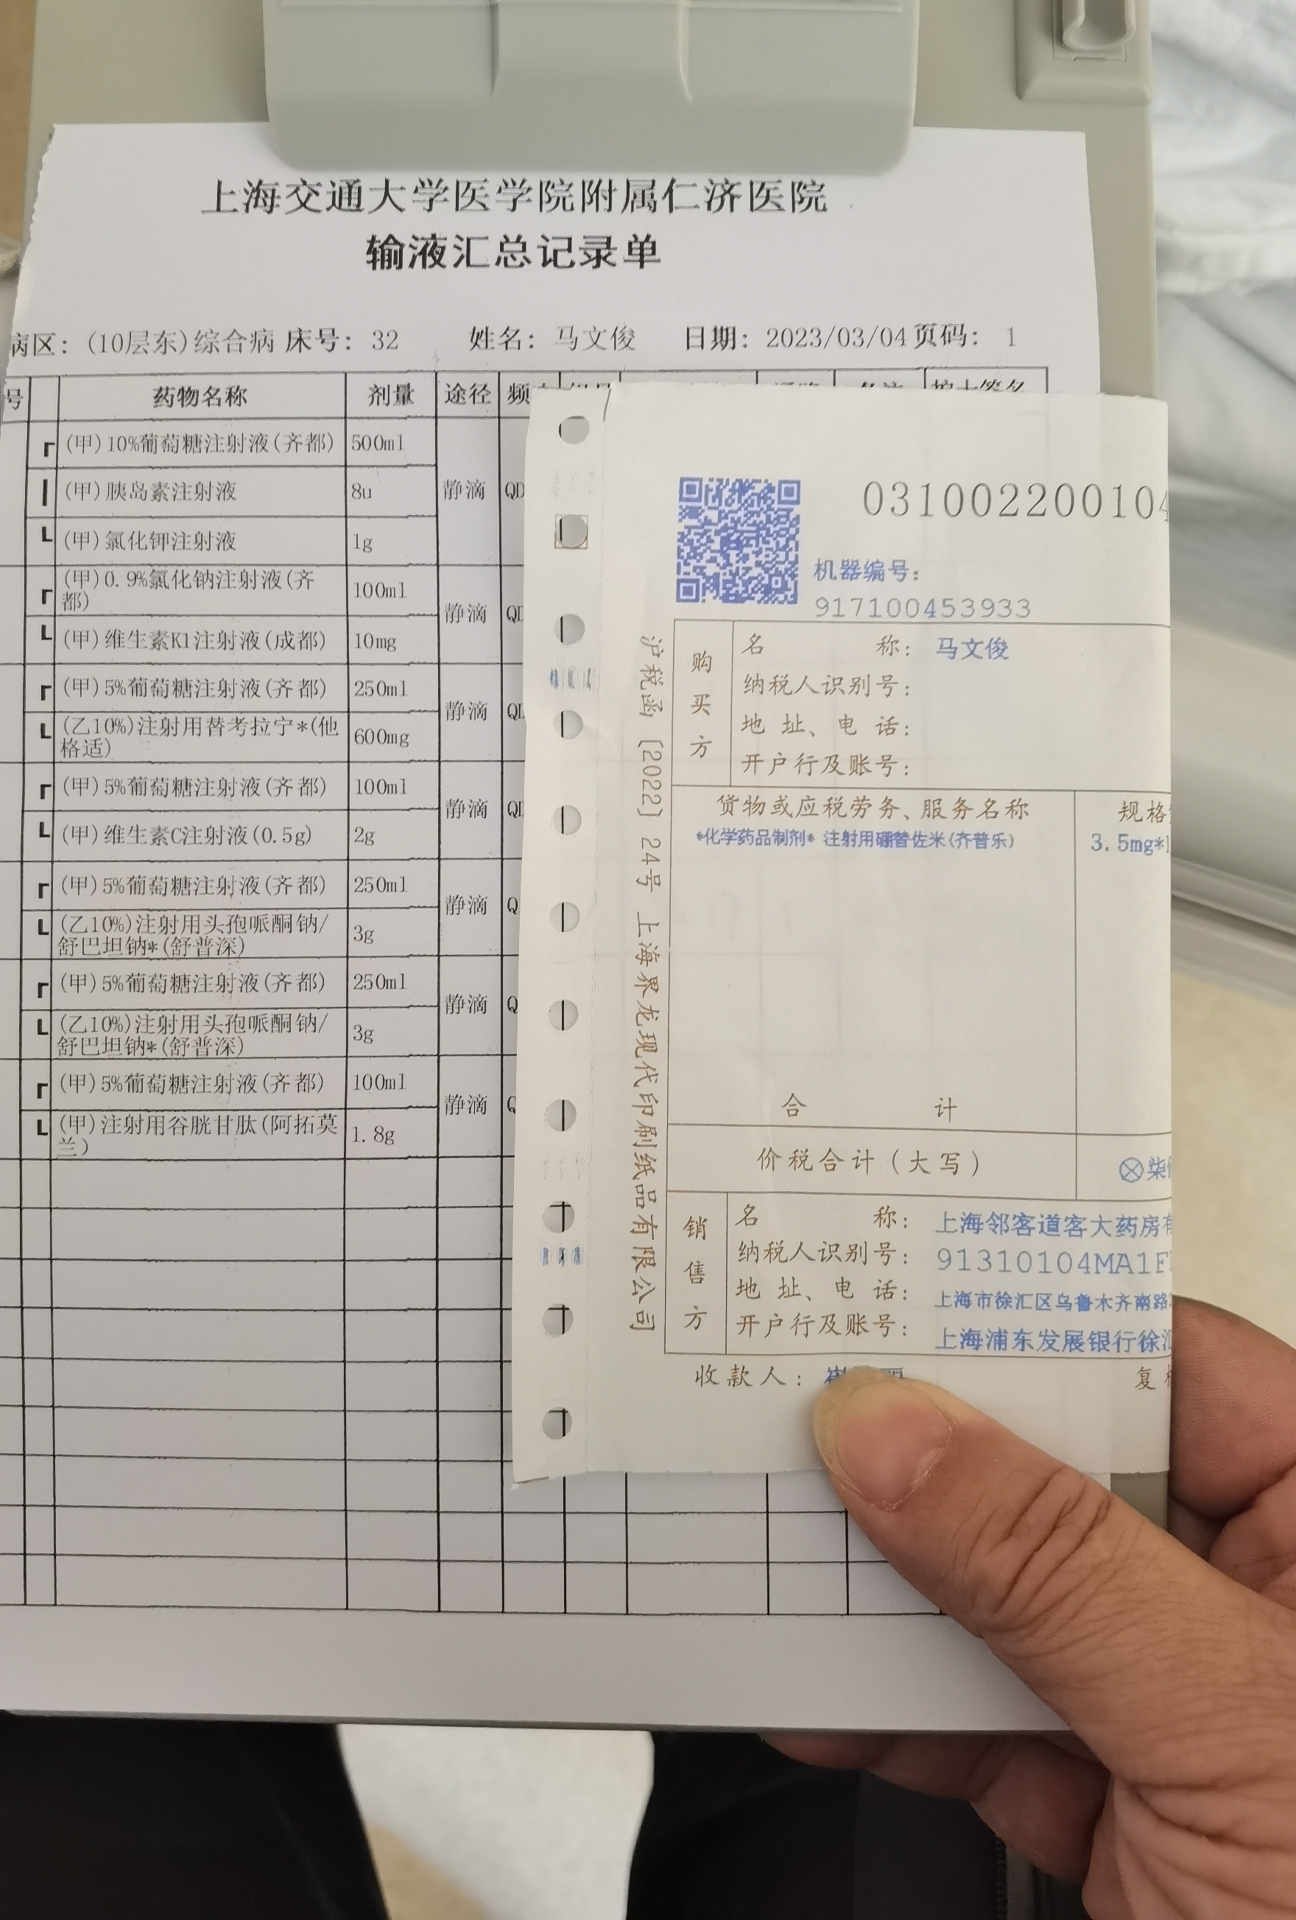 上海交通大学医学院附属仁济医院
输液汇总记录单
病区：(10层东)综合病 床号：32 姓名：马文俊 日期：2023/03/04 页码：1
号 药物名称 剂量 途径 频
(甲)10%葡萄糖注射液(齐都) 500ml
(甲)胰岛素注射液 8u 静滴 QD
(甲)氯化钾注射液 1g
(甲)0.9%氯化钠注射液(齐
都) 100ml
静滴
(甲)维生素K1注射液(成都) 10mg
(甲)5%葡萄糖注射液(齐都) 250ml
静滴
(乙10%)注射用替考拉宁*(他
格适) 600mg
(甲)5%葡萄糖注射液(齐都) 100ml
静滴
(甲)维生素C注射液(0.5g) 2g
(甲)5%葡萄糖注射液(齐都) 250ml
静滴 Q
(乙10%)注射用头孢哌酮钠/
舒巴坦钠*(舒普深) 3g
(甲)5%葡萄糖注射液(齐都) 250ml
静滴 Q
(乙10%)注射用头孢哌酮钠/
舒巴坦钠*(舒普深) 3g
(甲)5%葡萄糖注射液(齐都) 100ml
静滴
(甲)注射用谷胱甘肽(阿拓莫
兰) 1.8g
031002200104
机器编号：
917100453933
沪税函〔2022〕24号 上海界龙现代印刷纸品有限公司
购买方
名称：马文俊
纳税人识别号：
地址、电话：
开户行及账号：
货物或应税劳务、服务名称 规格
*化学药品制剂* 注射用硼替佐米(齐普乐) 3.5mg*1
合计
价税合计(大写) ⊗柒
销售方
名称：上海邻客道客大药房有
纳税人识别号：91310104MA1F
地址、电话：上海市徐汇区乌鲁木齐南路
开户行及账号：上海浦东发展银行徐汇
收款人： 复核